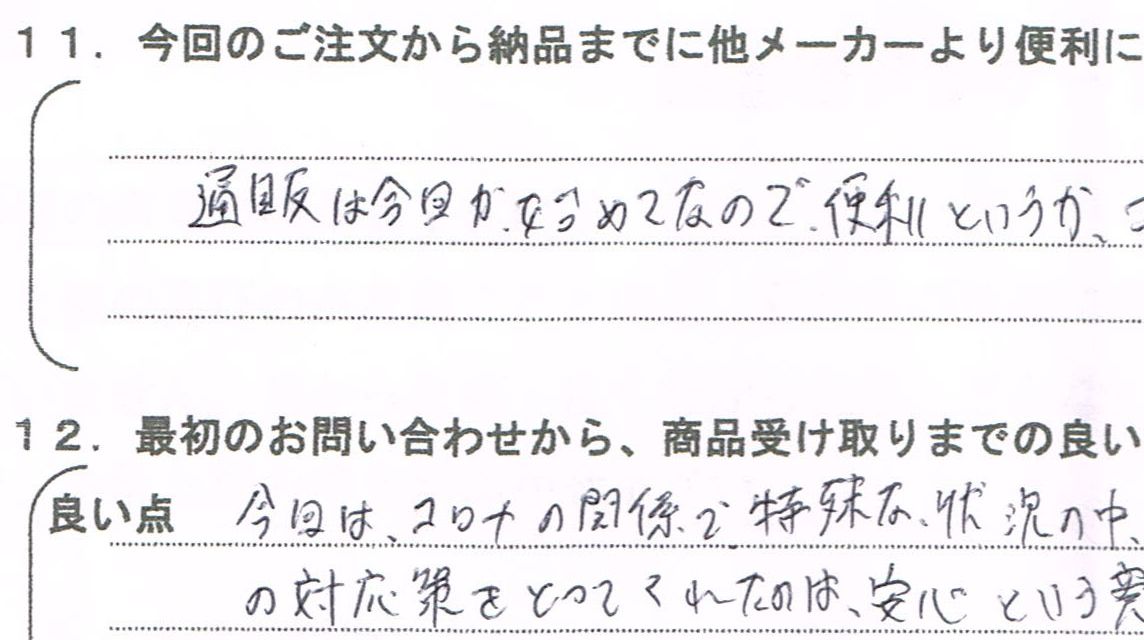 11. 今回のご注文から納品までに他メーカーより便利に
通販は今回が、始めてなので、便利というか、コ
12. 最初のお問い合わせから、商品受け取りまでの良い
良い点 今回は、コロナの関係で特殊な、状況の中、
の対応策をとってくれたのは、安心という